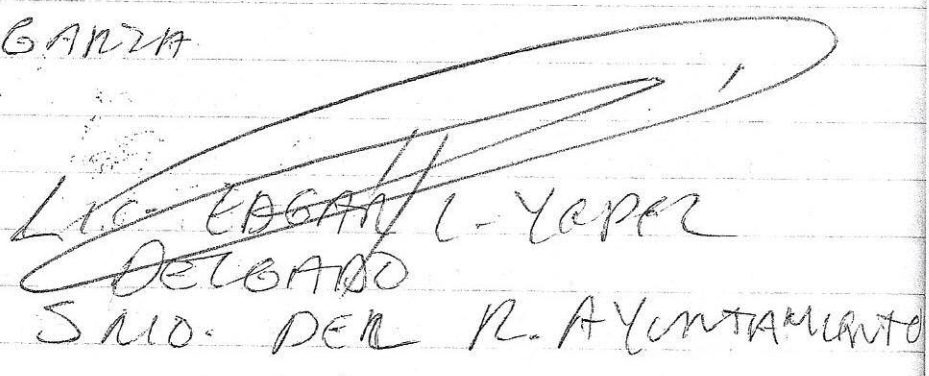 GARZA
LIC. EDGAR L. YEPEZ
DELGADO
SRIO. DEL R. AYUNTAMIENTO